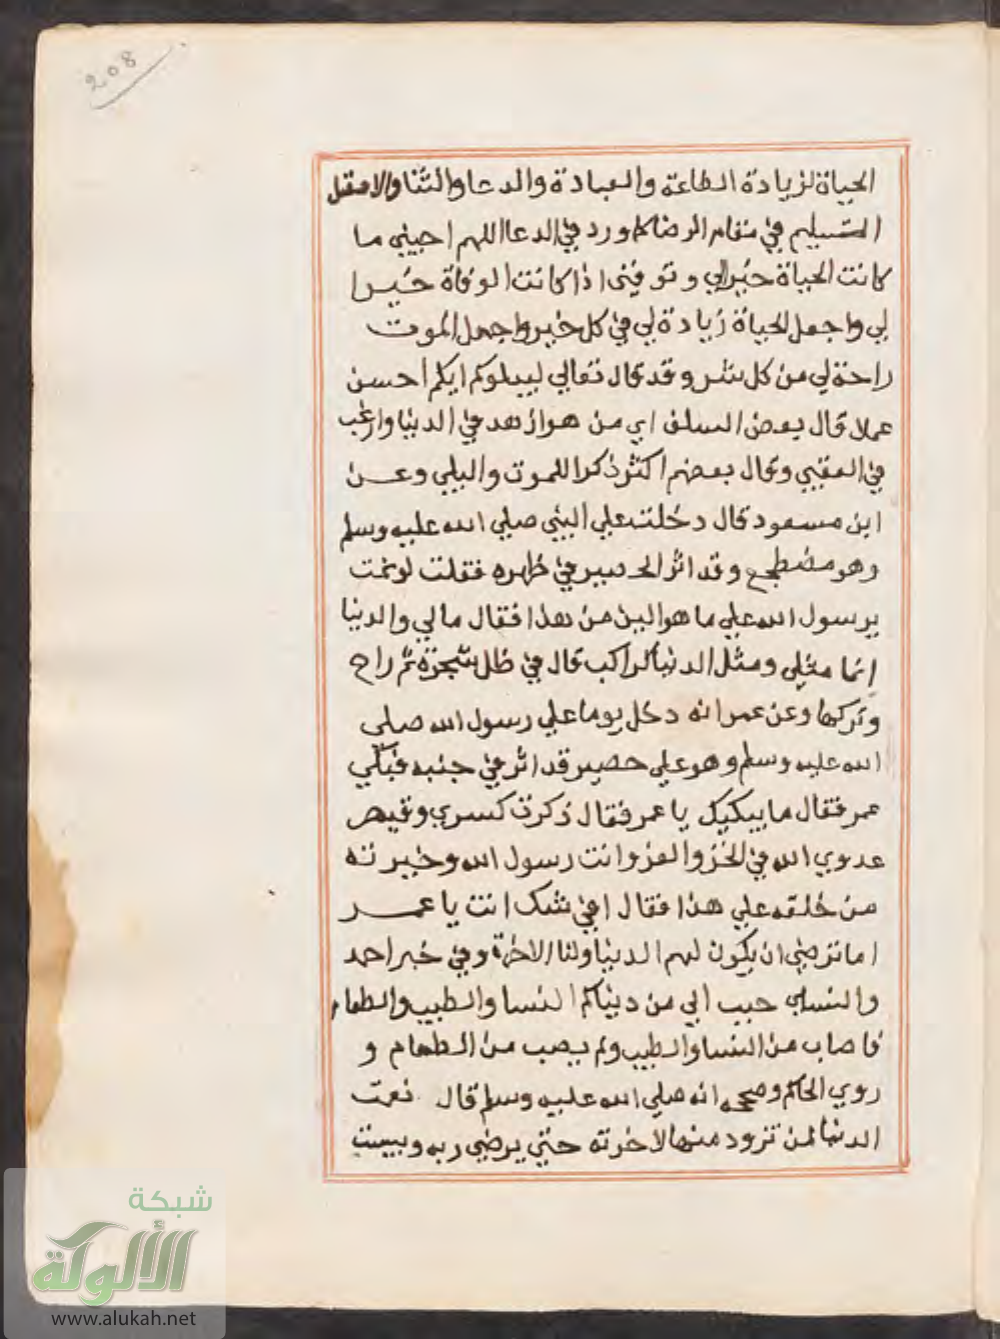 208
الحياة لزيادة الطاعة والعبادة والدعا والثنا والافضل
التسليم في مقام الرضا كما ورد في الدعا اللهم احييني ما
كانت الحياة خيرا لي وتوفني اذا كانت الوفاة خيرا
لي واجعل الحياة زيادة لي في كل خير واجعل الموت
راحة لي من كل شر وقد قال تعالي ليبلوكم ايكم احسن
عملا قال بعض السلف اي من هو ازهد في الدنيا وارغب
في العقبي وقال بعضهم اكثر ذكرا للموت والبلي وعن
ابن مسعود قال دخلت علي النبي صلي الله عليه وسلم
وهو مضطجع وقد اثر الحصير في ظهره فقلت لو نمت
يرسول الله علي ما هو الين من هذا فقال مالي والدنيا
انما مثلي ومثل الدنيا كراكب قال في ظل شجرة ثم راح
وتركها وعن عمر انه دخل يوما علي رسول الله صلي
الله عليه وسلم وهو علي حصير قد اثر في جنبه فبكي
عمر فقال ما يبكيك يا عمر فقال ذكرت كسري وقيصر
عدوي الله في الخز والقز وانت رسول الله وخيرته
من خلقه علي هذا فقال افي شك انت يا عمر
اما ترضي ان يكون لهم الدنيا ولنا الاخرة وفي خبر احمد
والنساي حبب الي من دنياكم النسا والطيب والطعام
فاصاب من النسا والطيب ولم يصب من الطعام و
روي الحاكم وصححه انه صلي الله عليه وسلم قال نعمت
الدنيا لمن تزود منها لاخرته حتي يرضي ربه وبيست
شبكة
الألوكة
www.alukah.net